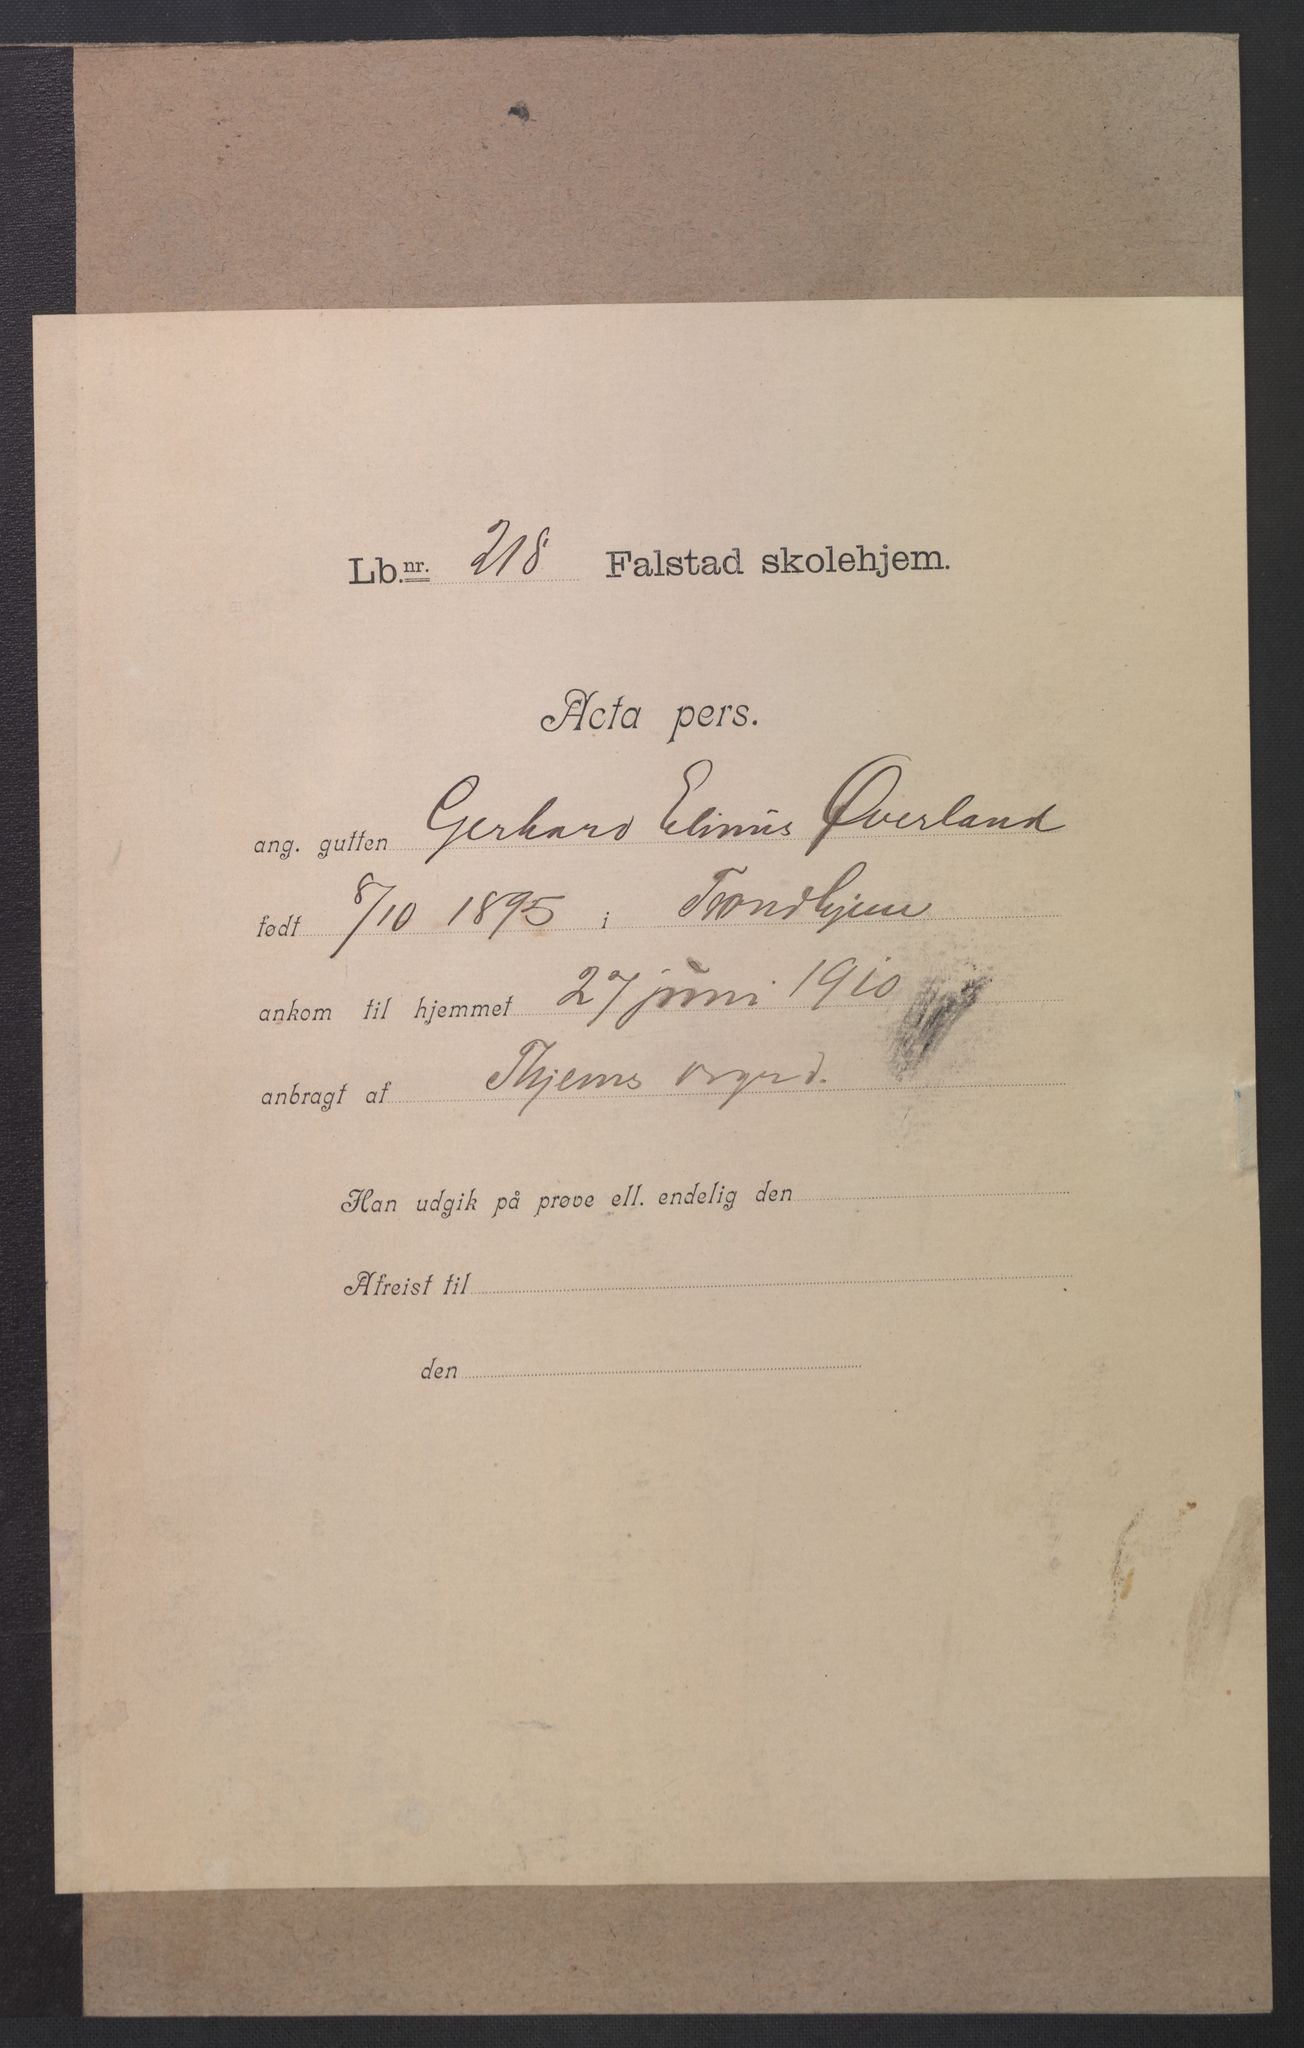 Lb.nr. 218 Falstad skolehjem.
Acta pers.
ang. gutten Gerhard Elinius Øverland
født 8/10 1895 i Trondhjem
ankom til hjemmet 27 juni 1910
anbragt af Thjems vrgrd.
Han udgik på prøve ell. endelig den
Afreist til
den